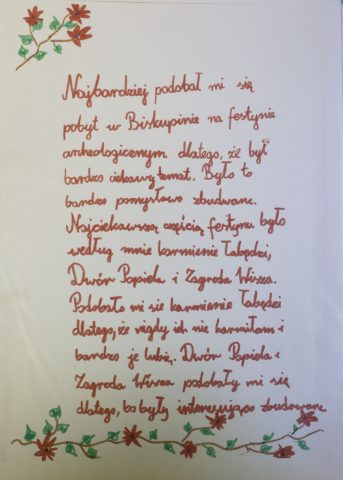 Najbardziej podobał mi się
pobyt w Biskupinie na festynie
archeologicznym dlatego, że był
bardzo ciekawy temat. Było to
bardzo pomysłowo zbudowane.
Najciekawszą częścią festynu było
według mnie karmienie łabędzi,
Dwór Popiela i Zagroda Wisza.
Podobało mi się karmienie łabędzi
dlatego, że nigdy ich nie karmiłam i
bardzo je lubię. Dwór Popiela i
Zagroda Wisza podobały mi się
dlatego, bo były interesująco zbudowane.